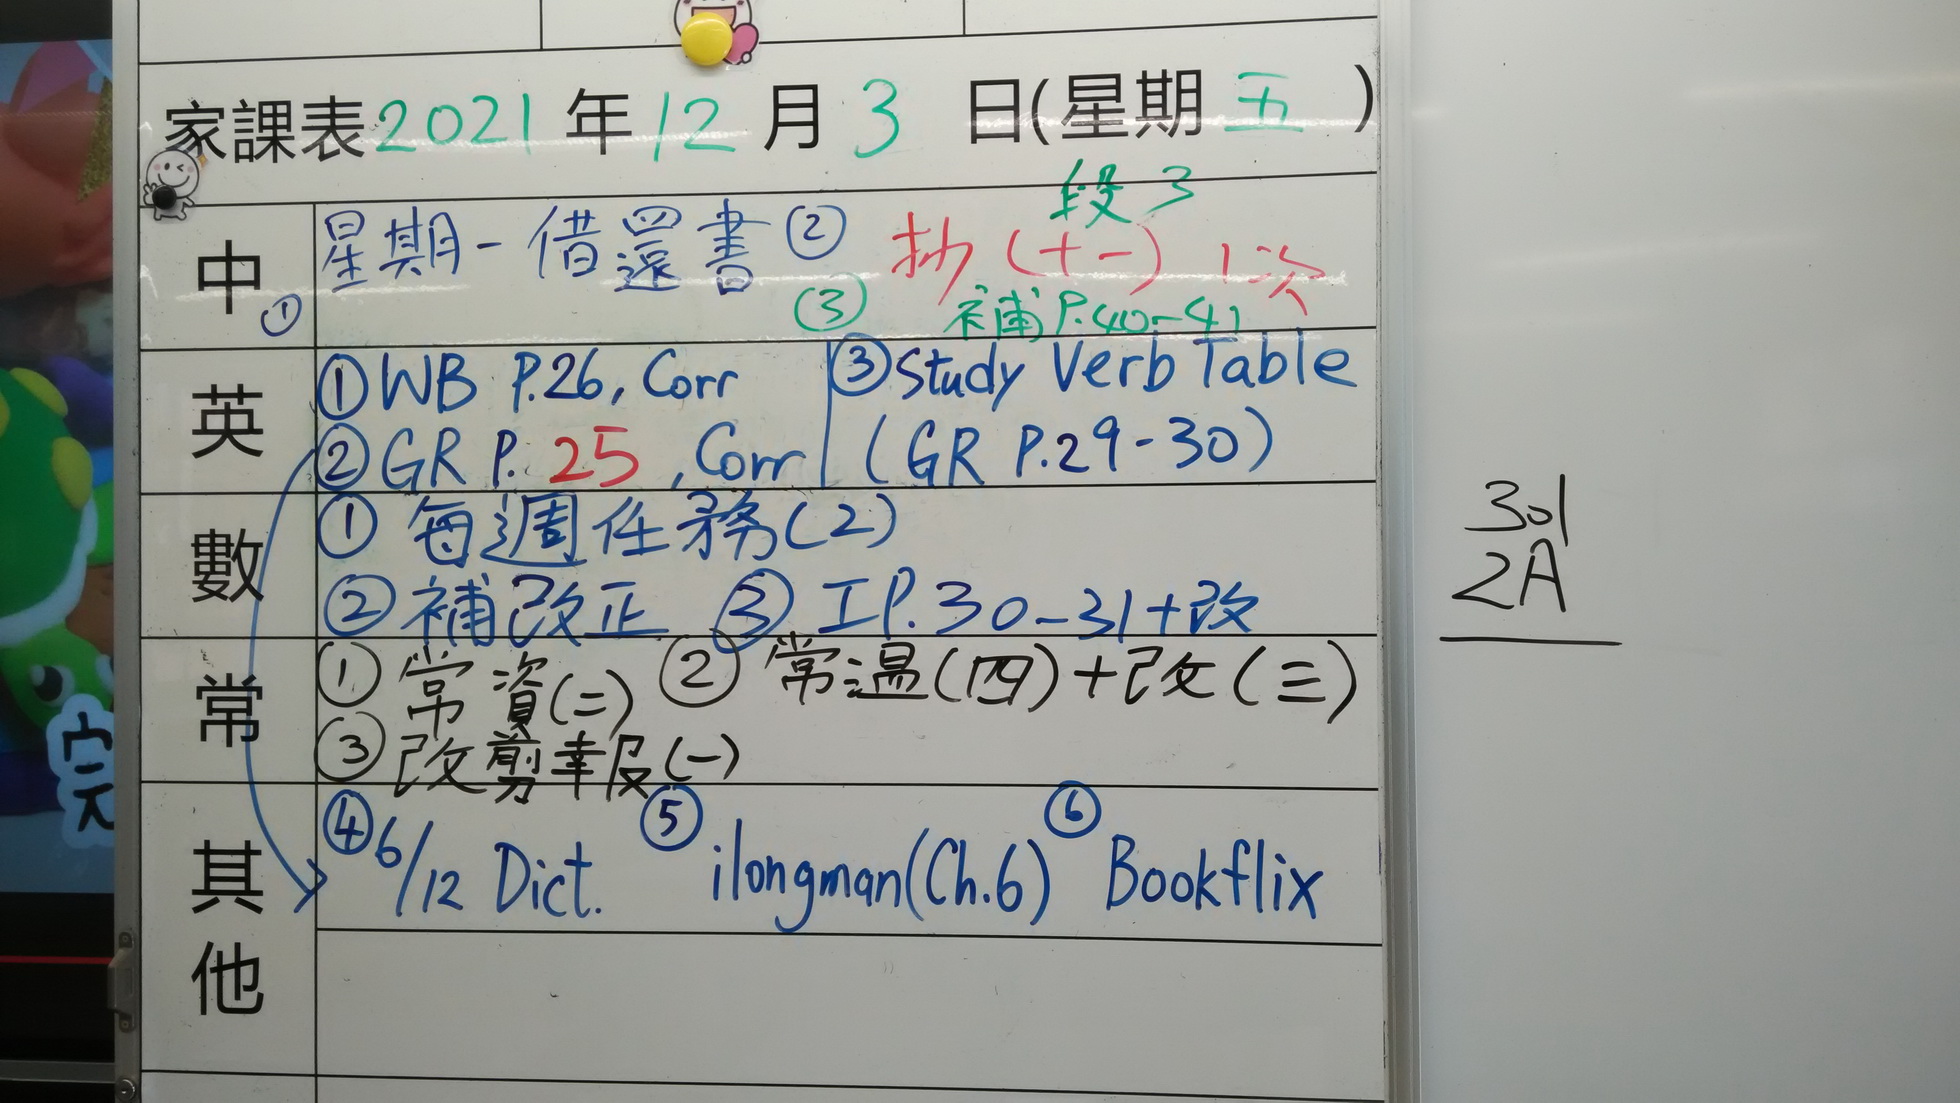 家課表2021年12月3日(星期五)
中
①星期一借還書②抄(十一)1次
段3
③補P.40-41
英
①WB P.26, Corr
②GR P.25, Corr
③Study Verb Table
(GR P.29-30)
數
①每週任務(2)
②補改正 ③工P.30-31+改
常
①常資(二) ②常溫(四)+改(三)
③改剪報(一)
其他
④6/12 Dict. ⑤ilongman(Ch.6) ⑥Bookflix
301
2A
完